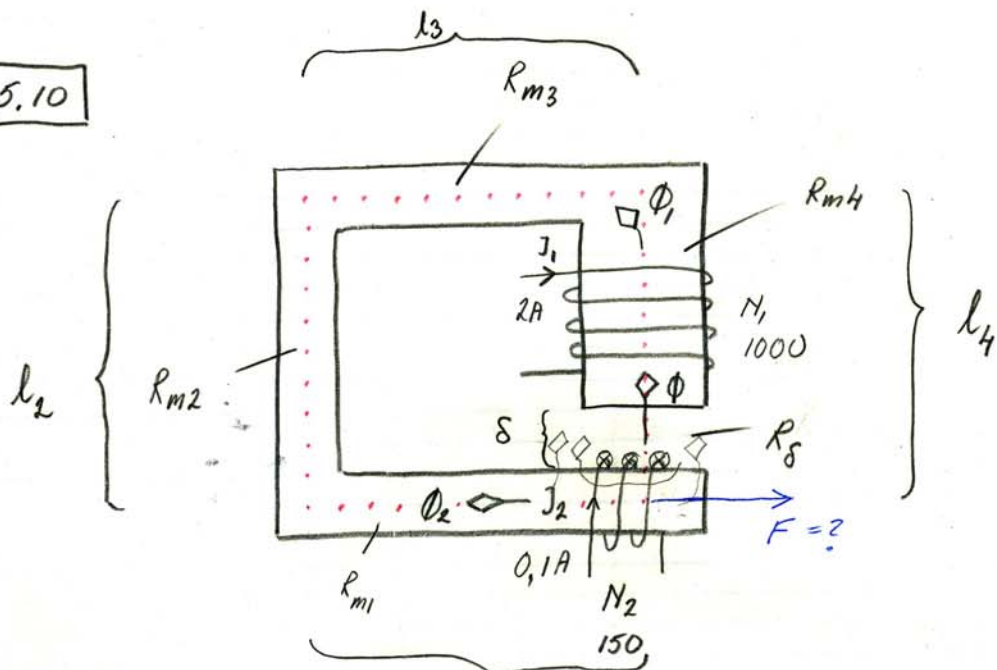 5.10
l3
Rm3
Φ1
Rm4
J1
2A
N1
1000
l4
l2
Rm2
Φ
δ
Rδ
Φ2
J2
F = ?
0,1A
Rm1
N2
150